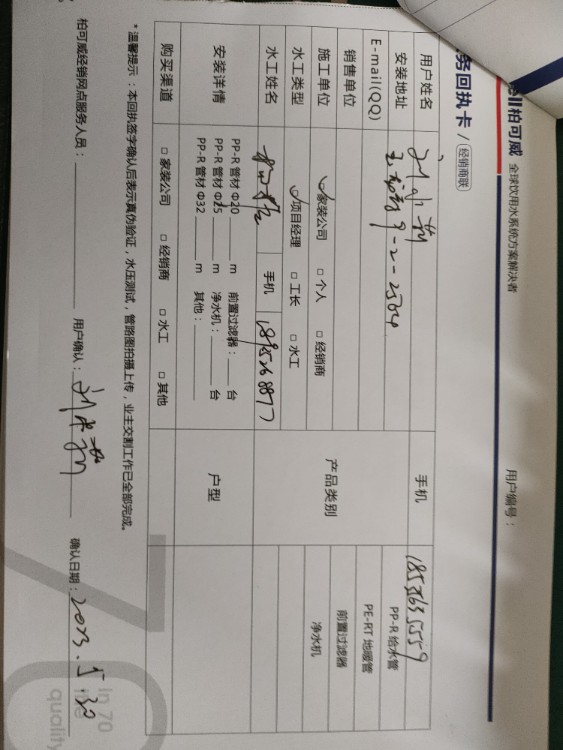 ell柏可威 全球饮用水系统方案解决者
用户编号：
务回执卡 / 经销商联
用户姓名 手机
安装地址 9-2-2504 PP-R 给水管
E-mail(QQ) PE-RT 地暖管
销售单位 产品类别 前置过滤器
施工单位 ☑家装公司 □ 个人 □ 经销商 净水机
水工类型 ☑项目经理 □ 工长 □ 水工
水工姓名 手机
安装详情 PP-R 管材 Φ20 ____ m 前置过滤器：____ 台 户型
PP-R 管材 Φ25 ____ m 净水机：____ 台
PP-R 管材 Φ32 ____ m 其他：____
购买渠道 □ 家装公司 □ 经销商 □ 水工 □ 其他
*温馨提示：本回执签字确认后表示真伪验证，水压测试，管路图拍摄上传，业主交割工作已全部完成。
柏可威经销网点服务人员： 用户确认： 确认日期：2023.5.30
in 70
quality